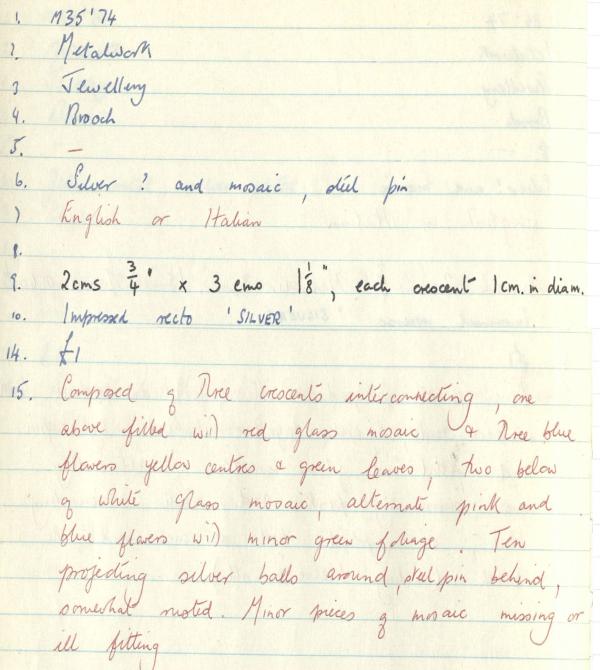 1. M35'74
2. Metalwork
3 Jewellery
4. Brooch
5. —
6. Silver ? and mosaic, steel pin
7 English or Italian
8.
9. 2cms 3/4" x 3 cms 1 1/8", each crescent 1cm. in diam.
10. Impressed recto 'SILVER'
14. £1
15. Composed of three crescents interconnecting, one
above filled with red glass mosaic & three blue
flowers yellow centres & green leaves; two below
of white glass mosaic, alternate pink and
blue flowers with minor green foliage. Ten
projecting silver balls around, steel pin behind,
somewhat rusted. Minor pieces of mosaic missing or
ill fitting